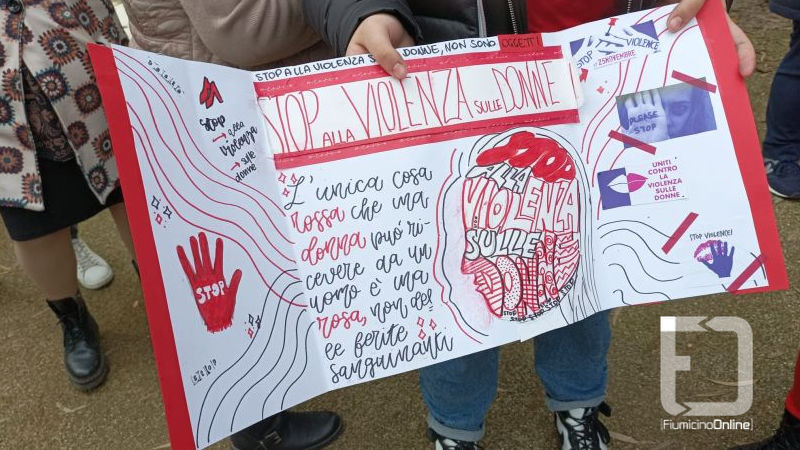 STOP ALLA VIOLENZA SULLE DONNE, NON SONO OGGETTI!
STOP ALLA VIOLENZA SULLE DONNE
STOP
alla
violenza
sulle
donne
STOP
L'unica cosa
rossa che una
donna può ri-
cevere da un
uomo è una
rosa, non del
le ferite
sanguinanti
STOP
ALLA
VIOLENZA
SULLE
DONNE
STOP STOP STOP STOP
VIOLENCE
25 NOVEMBRE
PLEASE
STOP
UNITI
CONTRO LA
VIOLENZA
SULLE
DONNE
STOP VIOLENCE!
FiumicinoOnline